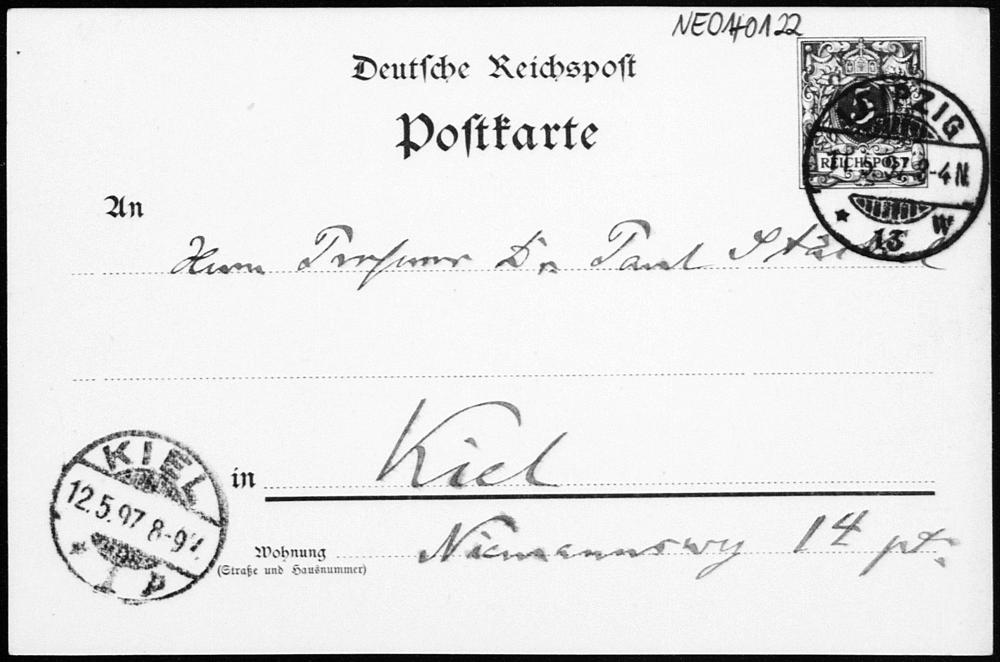 NEO140122
Deutsche Reichspost
Postkarte
5
REICHSPOST
LEIPZIG
3-4 N
13 W
An
Herrn Professor Dr. Paul Stäckel
Kiel
in
KIEL
12.5.97 8-9V.
1 P
Niemannsweg 14 pt.
Wohnung
(Straße und Hausnummer)